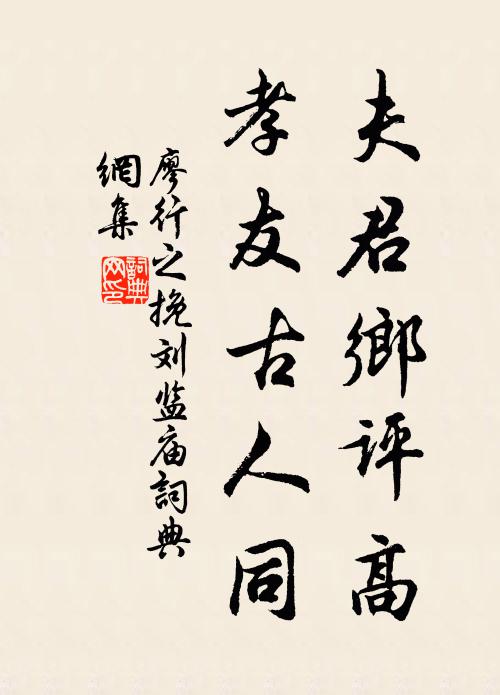 夫君鄉評高
孝友古人同
廖行之挽刘监庙詞典
網集
詞典
网印